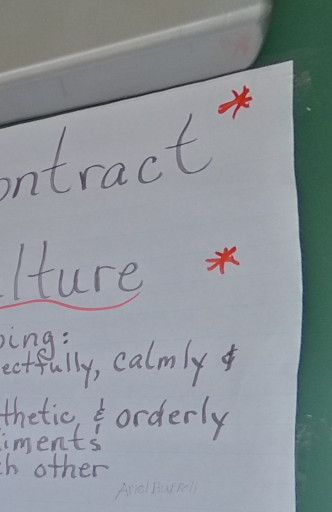 ontract *
lture *
ing:
ectfully, calmly &
thetic & orderly
iments
h other